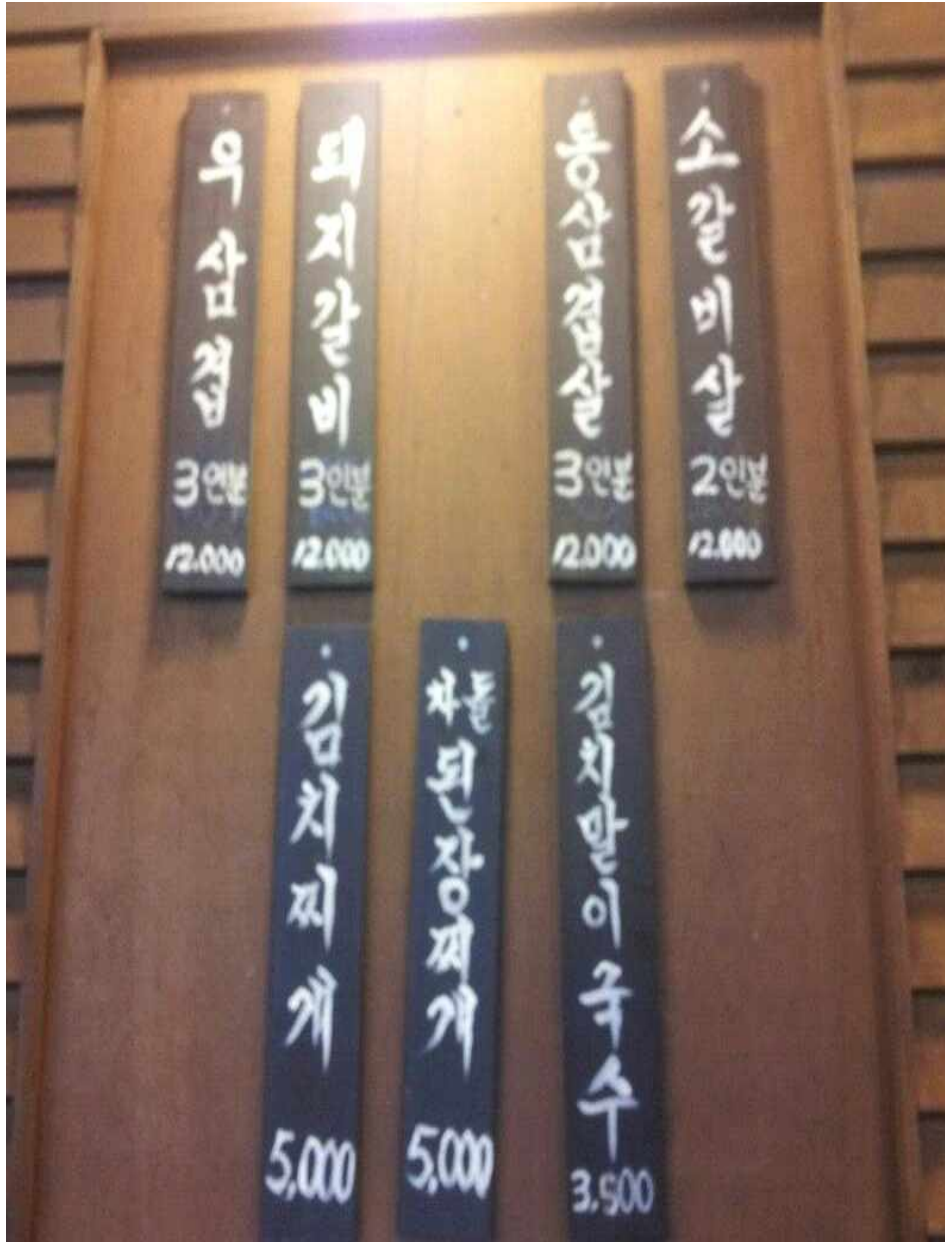 우삼겹
3인분
12.000
돼지갈비
3인분
12.000
통삼겹살
3인분
12.000
소갈비살
2인분
12.000
김치찌개
5,000
차돌
된장찌개
5,000
김치말이국수
3,500